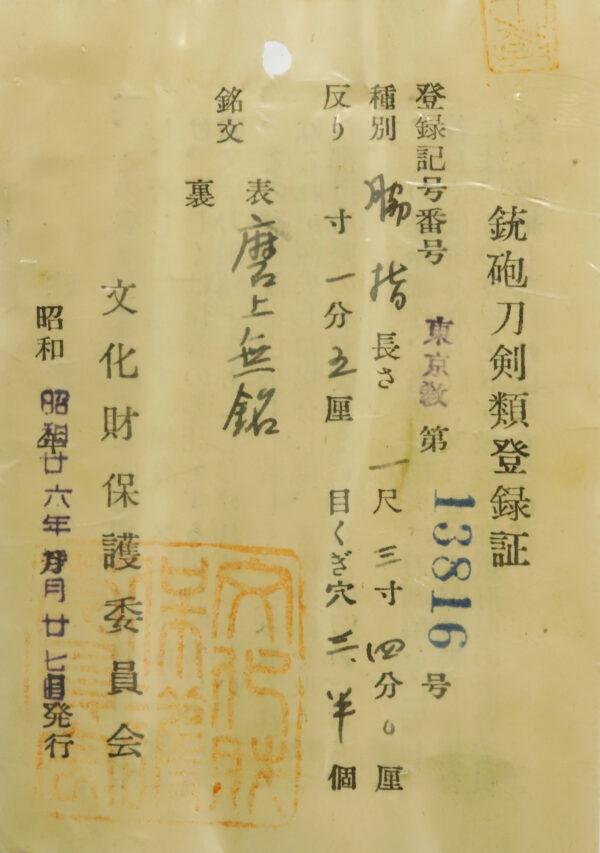 銃砲刀剣類登録証
登録記号番号 東京教 第 13816 号
種別 脇指 長さ 一尺三寸四分0厘
反り 寸一分五厘 目くぎ穴 二、半個
銘文 表 磨上無銘
裏
文化財保護委員会
昭和 年 月 日発行
昭和廿六年 月廿七日
文化財